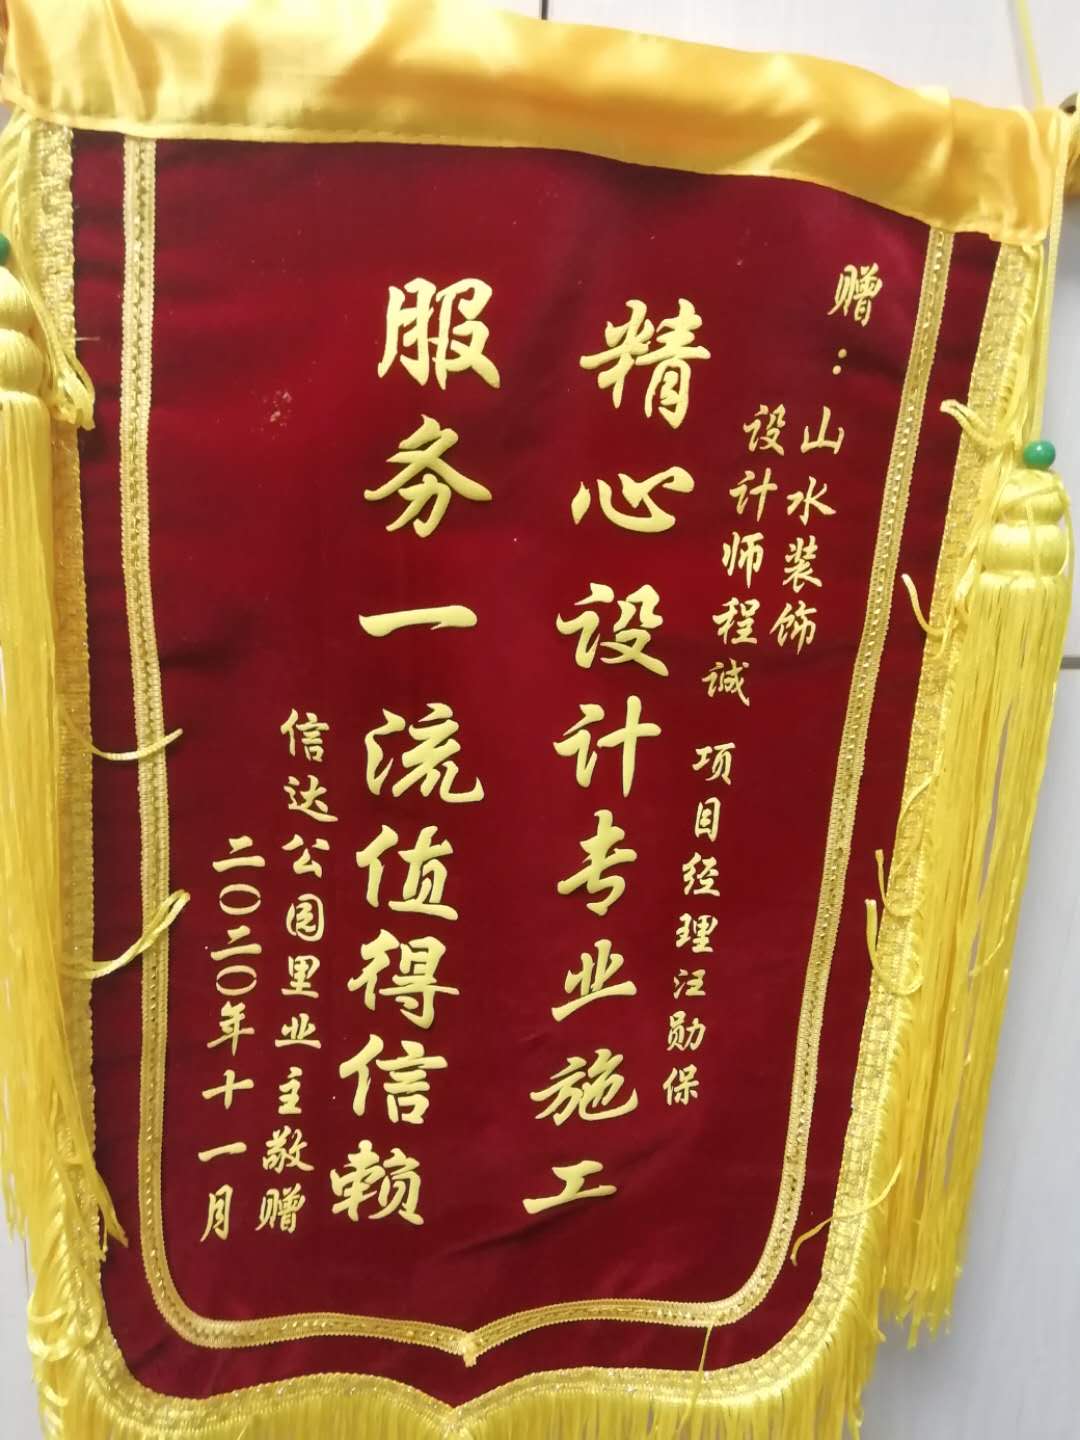 赠：山水装饰
设计师程诚 项目经理汪勋保
精心设计专业施工
服务一流值得信赖
信达公园里业主敬赠
二〇二〇年十一月